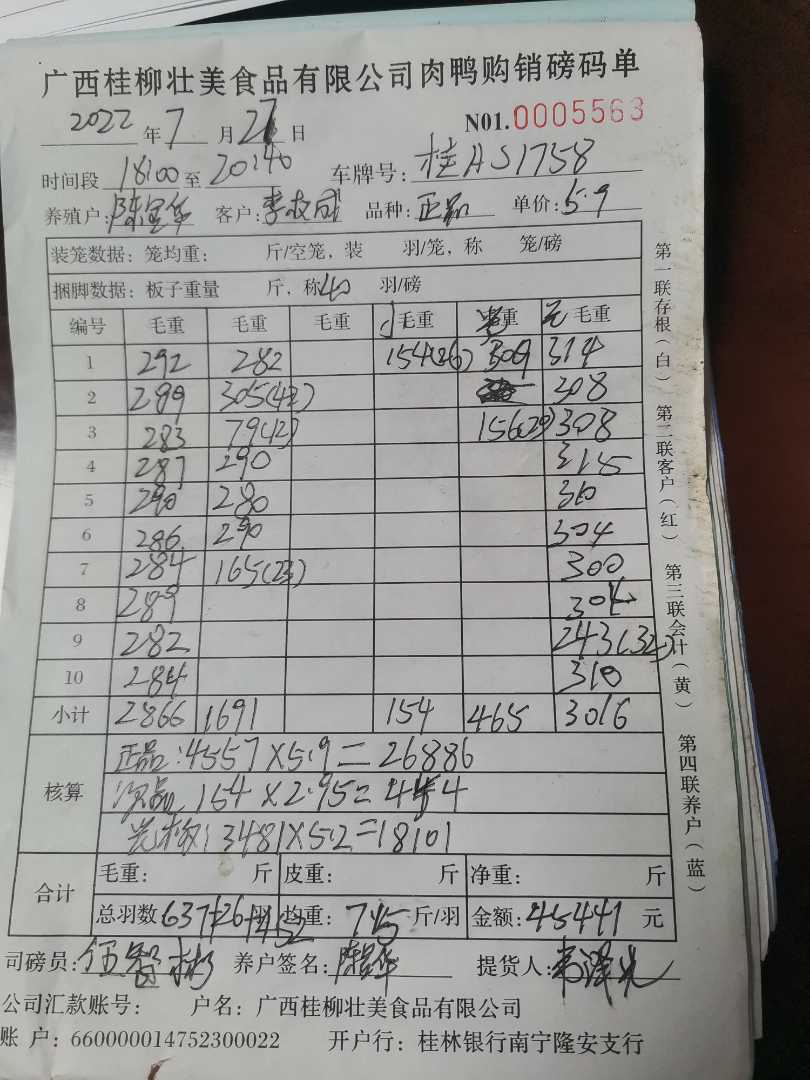 广西桂柳壮美食品有限公司肉鸭购销磅码单
2022 年 7 月 27 日 N01.0005563
时间段 18:00 至 20:40 车牌号: 桂AS1758
养殖户: 陈 华 客户: 李 成 品种: 正品 单价: 5.9
装笼数据: 笼均重: 斤/空笼, 装 羽/笼, 称 笼/磅
捆脚数据: 板子重量 斤, 称40 羽/磅
编号 毛重 毛重 毛重 小毛重 重 毛重
1 292 282 154(26) 309 314
2 299 305(42) 308
3 283 79(12) 156(20) 308
4 287 290 315
5 290 280 310
6 286 290 304
7 284 165(23) 300
8 289 304
9 282 243(32)
10 284 310
小计 2866 1691 154 465 3016
核算 正品:4557×5.9=26886
次品 154×2.95=454
3481×5.2=18101
合计 毛重: 斤 皮重: 斤 净重: 斤
总羽数 637+26+452 均重: 7.15 斤/羽 金额: 45441 元
司磅员: 伍 彬 养户签名: 陈 华 提货人:
公司汇款账号: 户名: 广西桂柳壮美食品有限公司
账 户: 660000014752300022 开户行: 桂林银行南宁隆安支行
第一联存根(白)
第二联客户(红)
第三联会计(黄)
第四联养户(蓝)